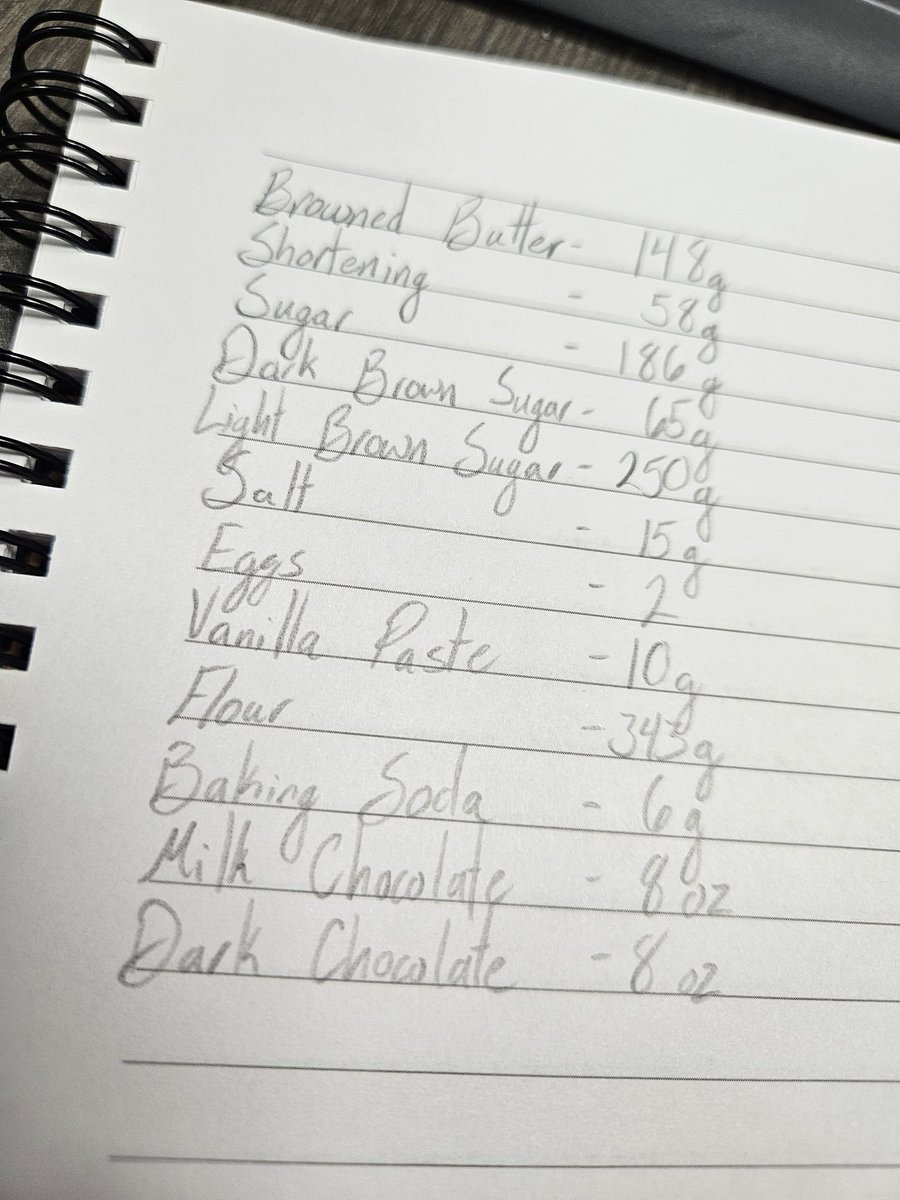 Browned Butter - 148g
Shortening - 58g
Sugar - 186g
Dark Brown Sugar - 65g
Light Brown Sugar - 250g
Salt - 15g
Eggs - 2
Vanilla Paste - 10g
Flour - 343g
Baking Soda - 6g
Milk Chocolate - 8 oz
Dark Chocolate - 8 oz